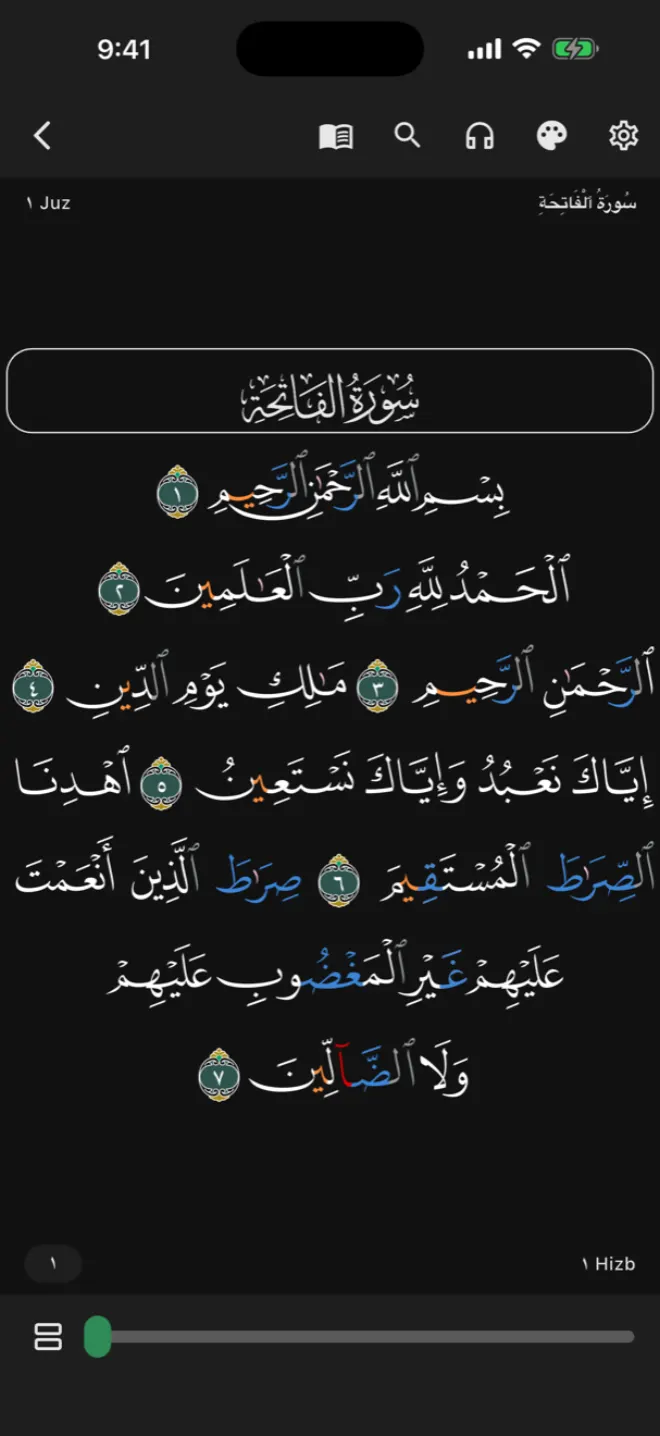 9:41
١ Juz
سُورَةُ ٱلْفَاتِحَةِ
سُورَةُ الفَاتِحَةِ
بِسْمِ ٱللَّهِ ٱلرَّحْمَٰنِ ٱلرَّحِيمِ ١
ٱلْحَمْدُ لِلَّهِ رَبِّ ٱلْعَٰلَمِينَ ٢
ٱلرَّحْمَٰنِ ٱلرَّحِيمِ ٣ مَٰلِكِ يَوْمِ ٱلدِّينِ ٤
إِيَّاكَ نَعْبُدُ وَإِيَّاكَ نَسْتَعِينُ ٥ ٱهْدِنَا
ٱلصِّرَٰطَ ٱلْمُسْتَقِيمَ ٦ صِرَٰطَ ٱلَّذِينَ أَنْعَمْتَ
عَلَيْهِمْ غَيْرِ ٱلْمَغْضُوبِ عَلَيْهِمْ
وَلَا ٱلضَّآلِّينَ ٧
١
١ Hizb